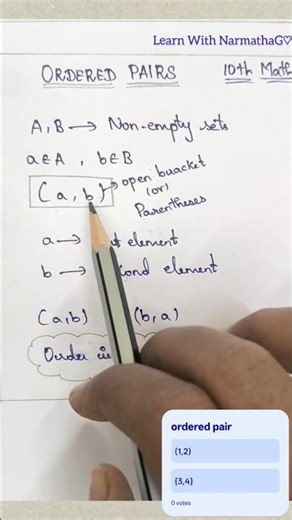 Learn With NarmathaG♡
ORDERED PAIRS 10th Math
A, B → Non-empty sets
a ∈ A , b ∈ B
(a, b) → open bracket
(or)
Parentheses
a → element
b → element
(a,b) (b,a)
Order
ordered pair
(1,2)
{3,4}
0 votes